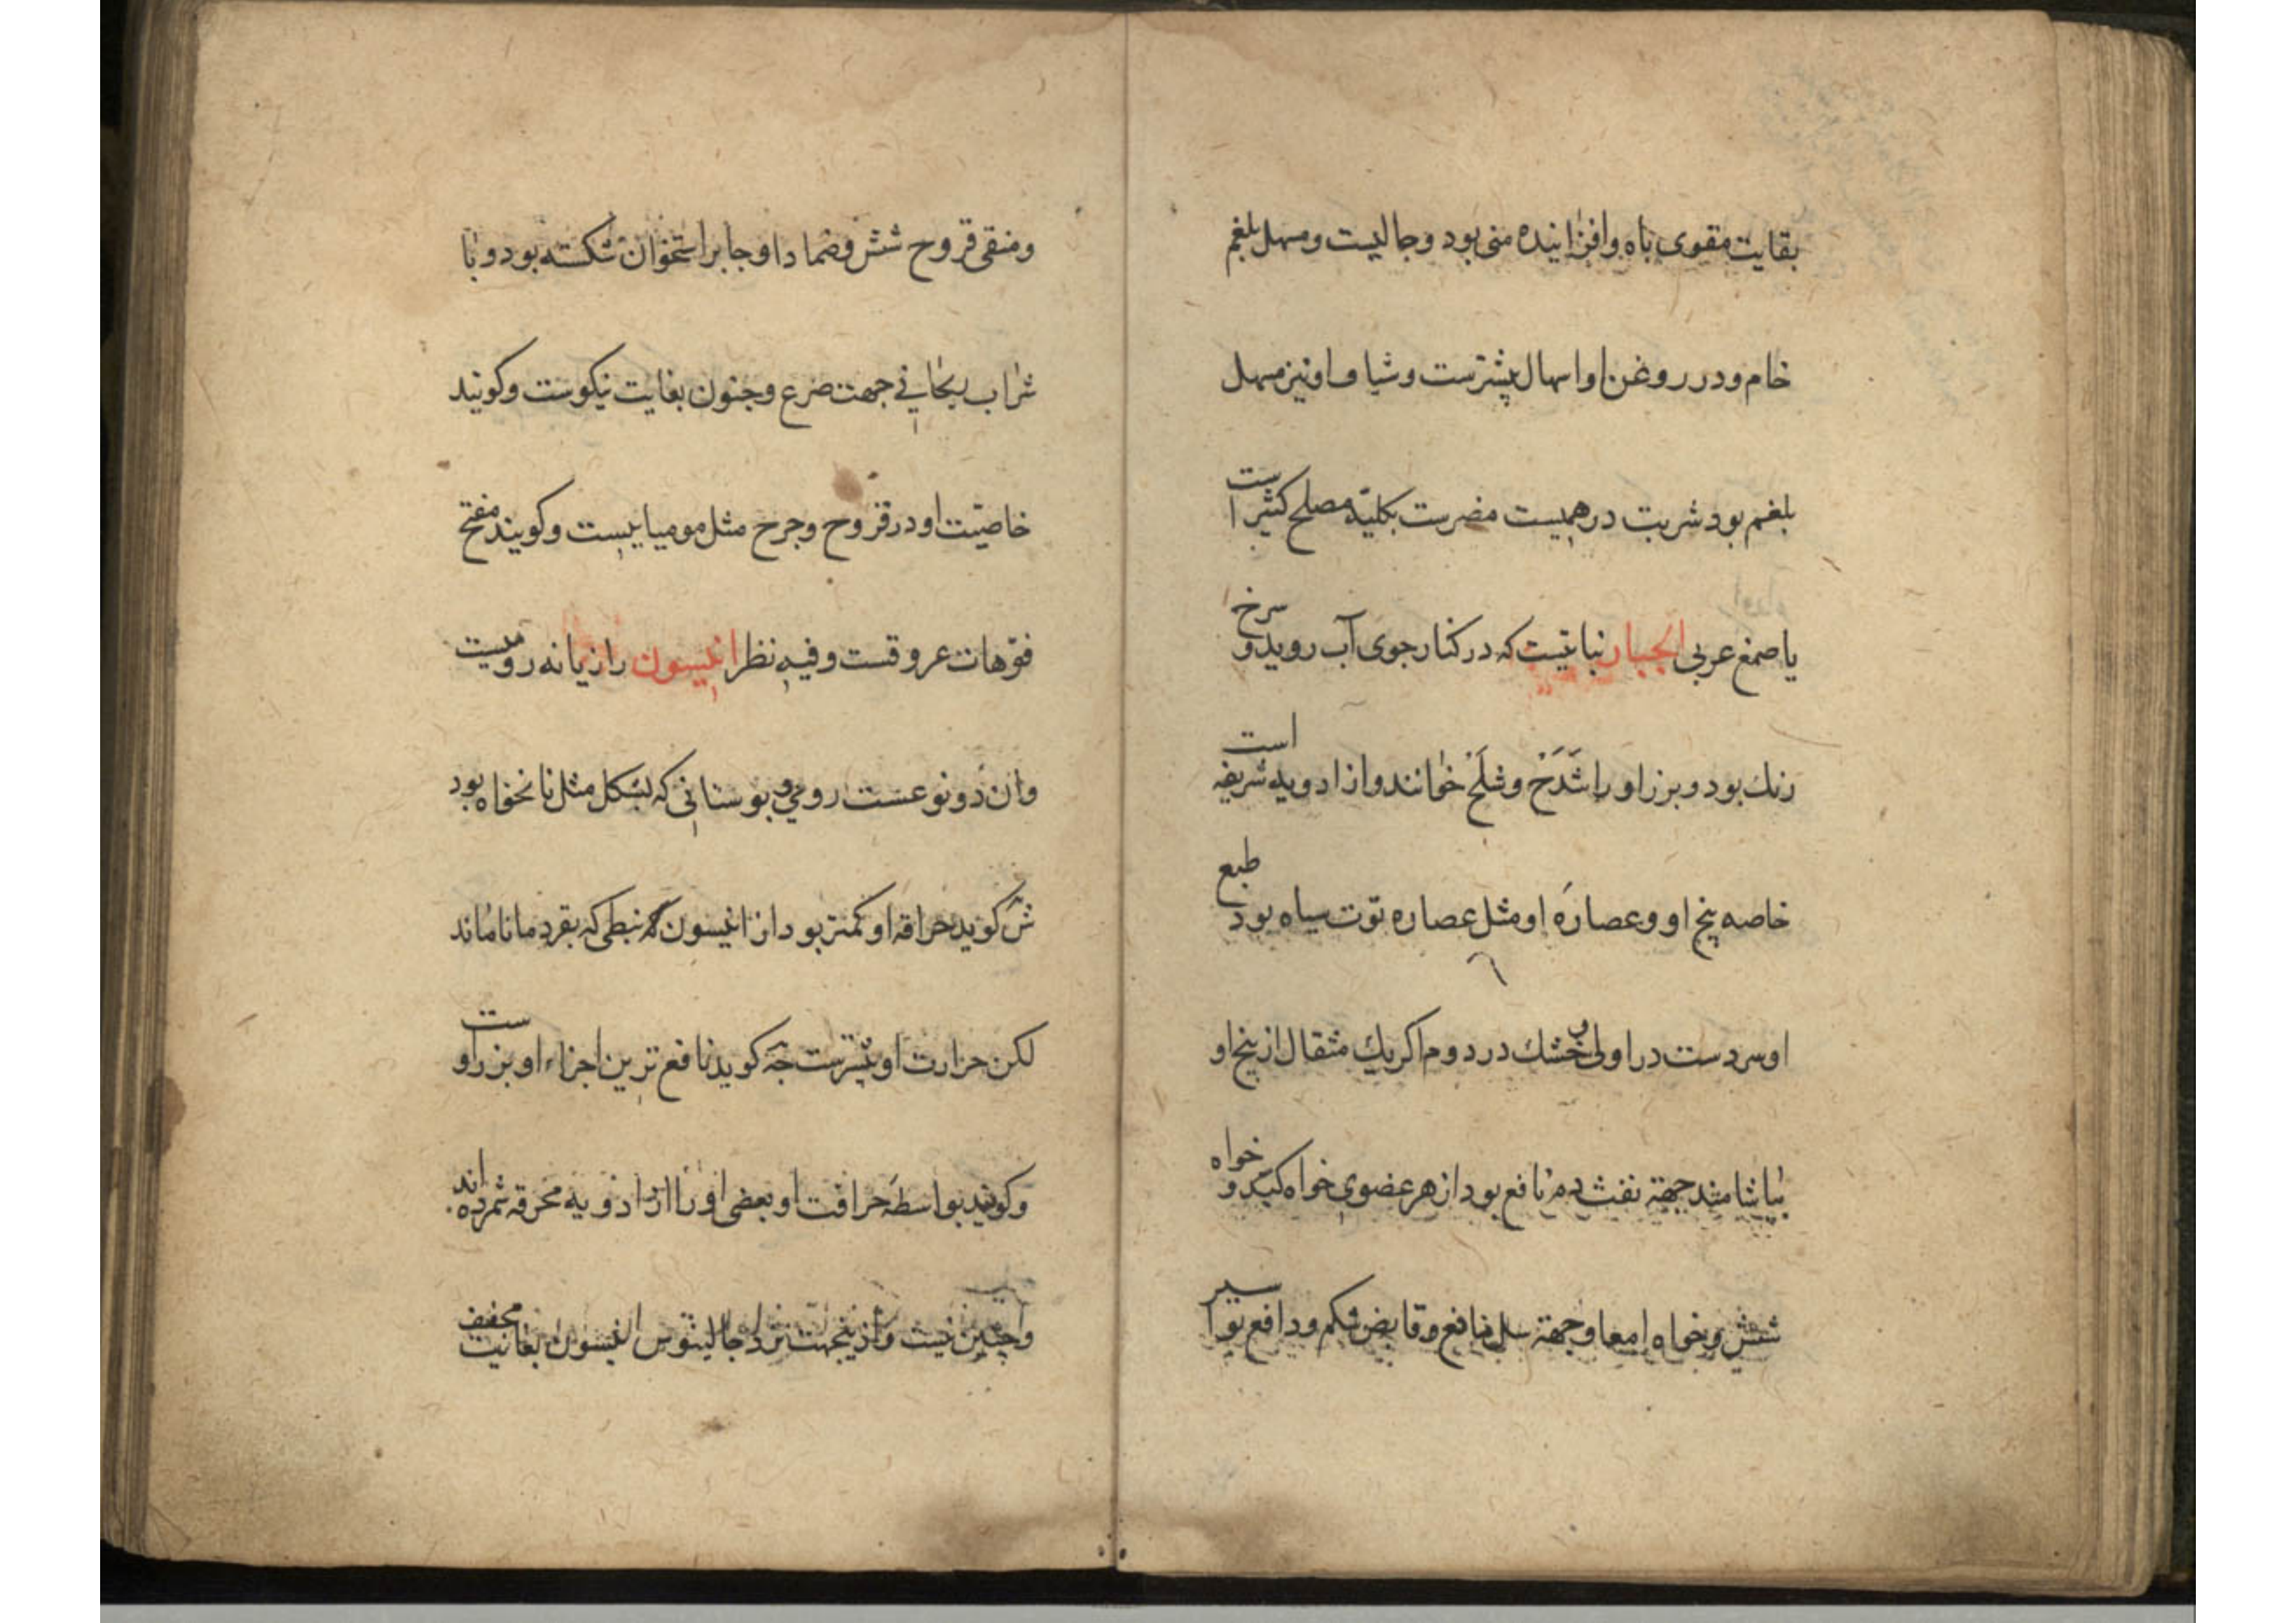 بقایت مقوی باه وافزاینده منی بود و جالیست و مسهل بلغم
خام و در روغن او اسهال بیشترست و شیاف او نیز مسهل
بلغم بود شربت درهمیست مضرست بکلیه مصلح کثیرا ست
یا صمغ عربی انجبار نباتیست که در کنار جوی آب روید و سرخ
رنك بود و بزر او را شَدَخ و شلَخ خوانند و از ادویه شریفه است
خاصه بیخ او و عصارهٔ او مثل عصاره توت سیاه بود طبع
او سردست در اولی و خشك در دوم اکر یك مثقال از بیخ او
بیاشامند جهة نفث دم نافع بود از هر عضوی خواه کبد و خواه
شش و خواه امعا و جهة سل نافع و قابض شکم و دافع بوا سیر
و منقی قروح شش و ضماد او جابر استخوان شکسته بود و با
شراب ریحانی جهت صرع و جنون بغایت نیکوست و کویند
خاصیّت او در قروح و جرح مثل مومیاییست و کویند مفتح
فوّهات عروقست و فیه نظر انیسون رازیانه رومیست
وان دو نوعست رومی و بوستانی که بشکل مثل نانخواه بود
ش کوید حراقه او کمتر بود از انیسون نبطی که بقردمانا ماند
لکن حرارت او بیشترست جه کوید نافع ترین اجزاء او بزر او ست
و کویند بواسطه حرافت او بعضی او را از ادویه محرقه شمرده اند
و اینچنین نیست و ازینجهت نزد جالینوس انیسون بغایت مجفف